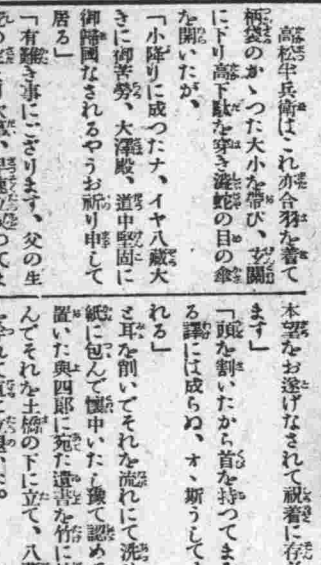 高松半兵衛は、これ亦合羽を着て
柄袋のかゝつた大小を帶び、玄關
に下り高下駄を穿き澁蛇の目の傘
を開いたが、
「小降りに成つたナ、イヤ八藏大
きに御苦勞、大澤殿、道中堅固に
御歸國なされるやうお祈り申して
居る」
「有難き事にござります、父の生
本望をお遂げなされて祝着に存
ます」
「頭を割いたから首を持つてま
る譯には成らぬ、オヽ斯うして
れる」
と耳を削いでそれを流れにて洗
紙に包んで懷中いたし豫て認め
置いた與四郎に宛た遺書を竹に
んでそれを土橋の下に立て、八